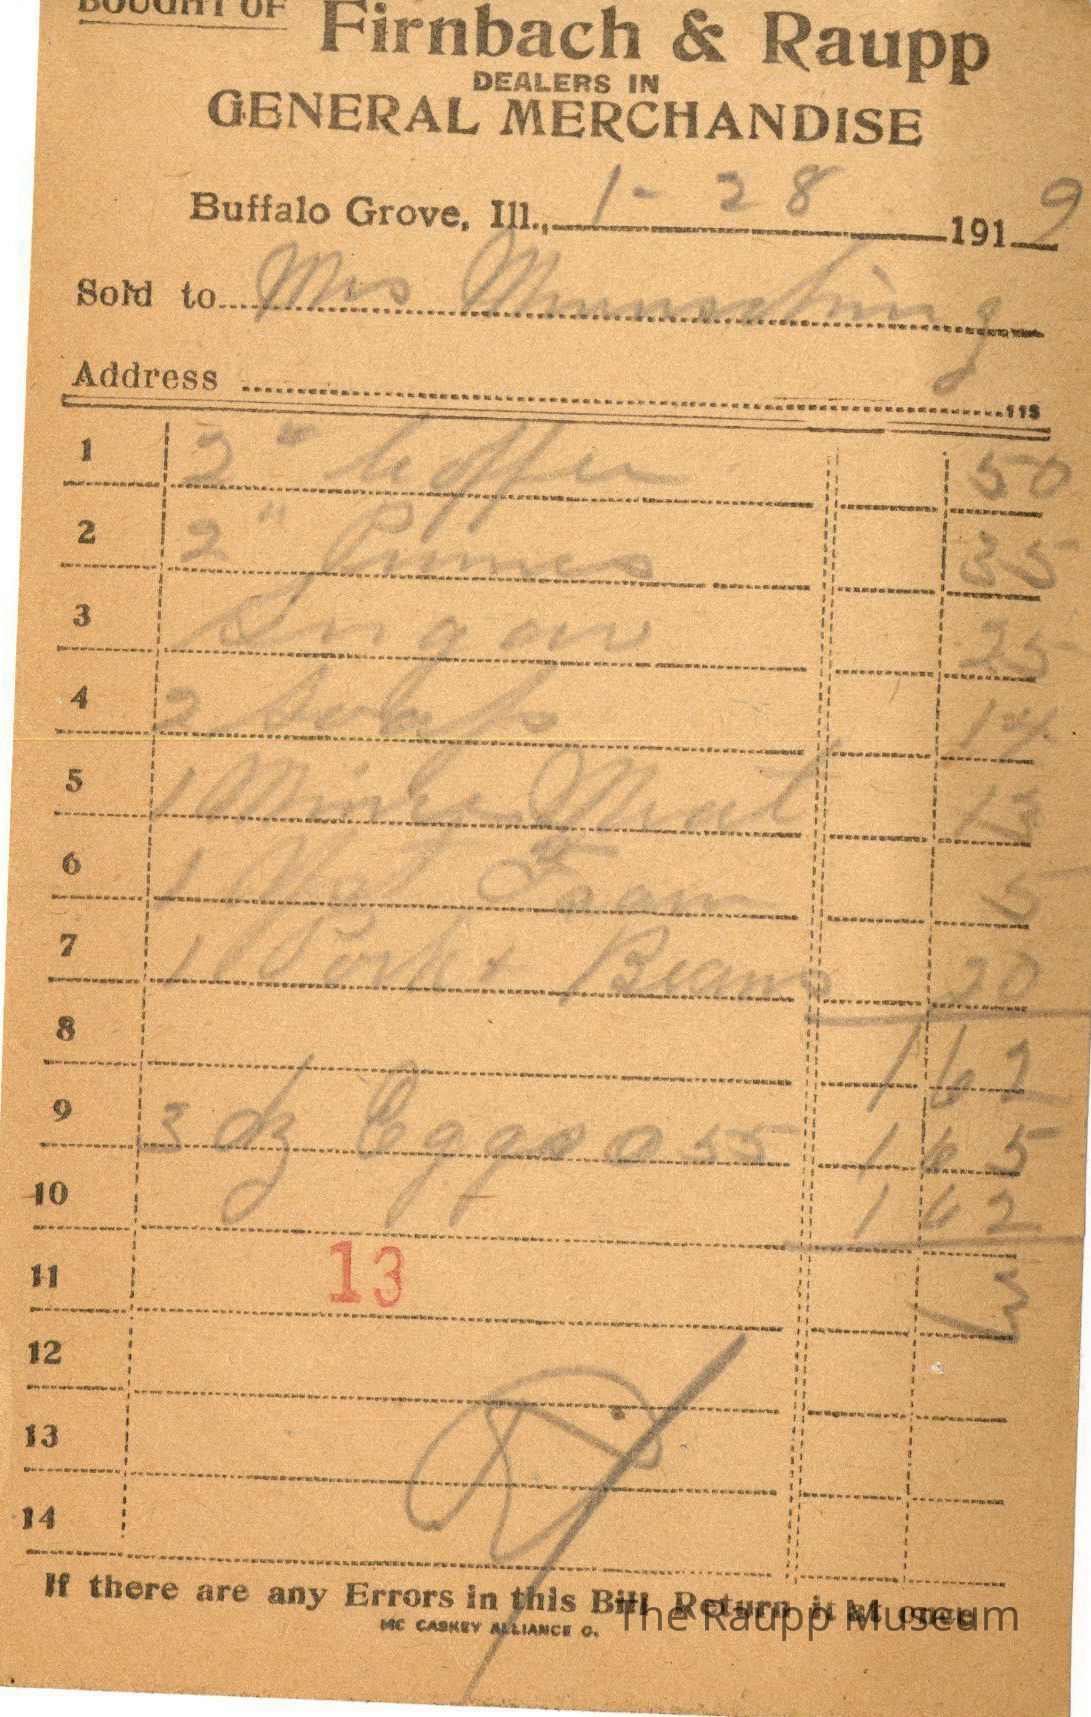 BOUGHT OF
Firnbach & Raupp
DEALERS IN
GENERAL MERCHANDISE
Buffalo Grove, Ill., 1-28 1919
Sold to Mrs
Address
113
1 2 " Coffee 50
2 2 " Prunes 35
3 Sugar 25
4 2 Soaps 14
5 1 Mince Meat 13
6 1 Yst Foam 5
7 1 Pork + Beans 20
8 1 62
9 3 dz Eggs @ 55 1 65
10 1 62
11 13 3
12
13
14
If there are any Errors in this Bill Return it at once
MC CASKEY ALLIANCE O.
The Raupp Museum